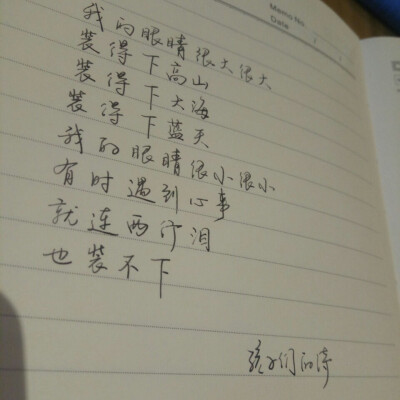 Memo No.
Date
我的眼睛很大很大
装得下高山
装得下大海
装得下蓝天
我的眼睛很小很小
有时遇到心事
就连两行泪
也装不下
孩子们的诗